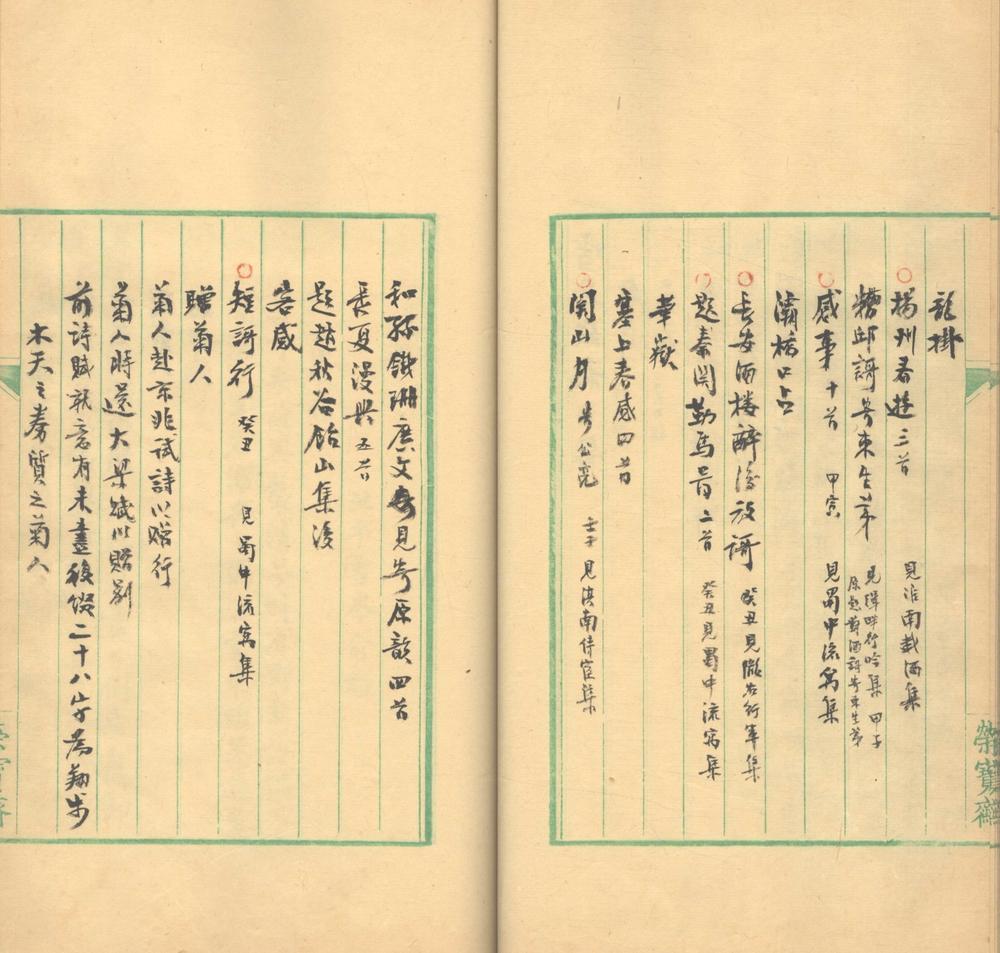 龍掛
揚州看遊三首　見淮南載酒集
糟邱謌寄東生弟　見澤畔行吟集　甲子
原題對酒謌寄東生弟
感事十首　甲寅　見蜀中流寓集
灞橋口占
長安酒樓醉後放謌　癸丑見隴右行軍集
題秦關勒馬啚二首　癸丑見蜀中流寓集
華嶽
塞上春感四首
関山月　寄公亮　壬子　見濟南侍宦集
榮寶齋
和孫鐵珊廣文見寄原韻四首
長夏漫興五首
題趙秋谷飴山集後
客感
短謌行　癸丑　見蜀中流寓集
贈菊人
菊人赴京兆試詩以贈行
菊人時還大梁賦以贈別
前詩賦就意有未盡後綴二十八字為翔步
木天之券質之菊人